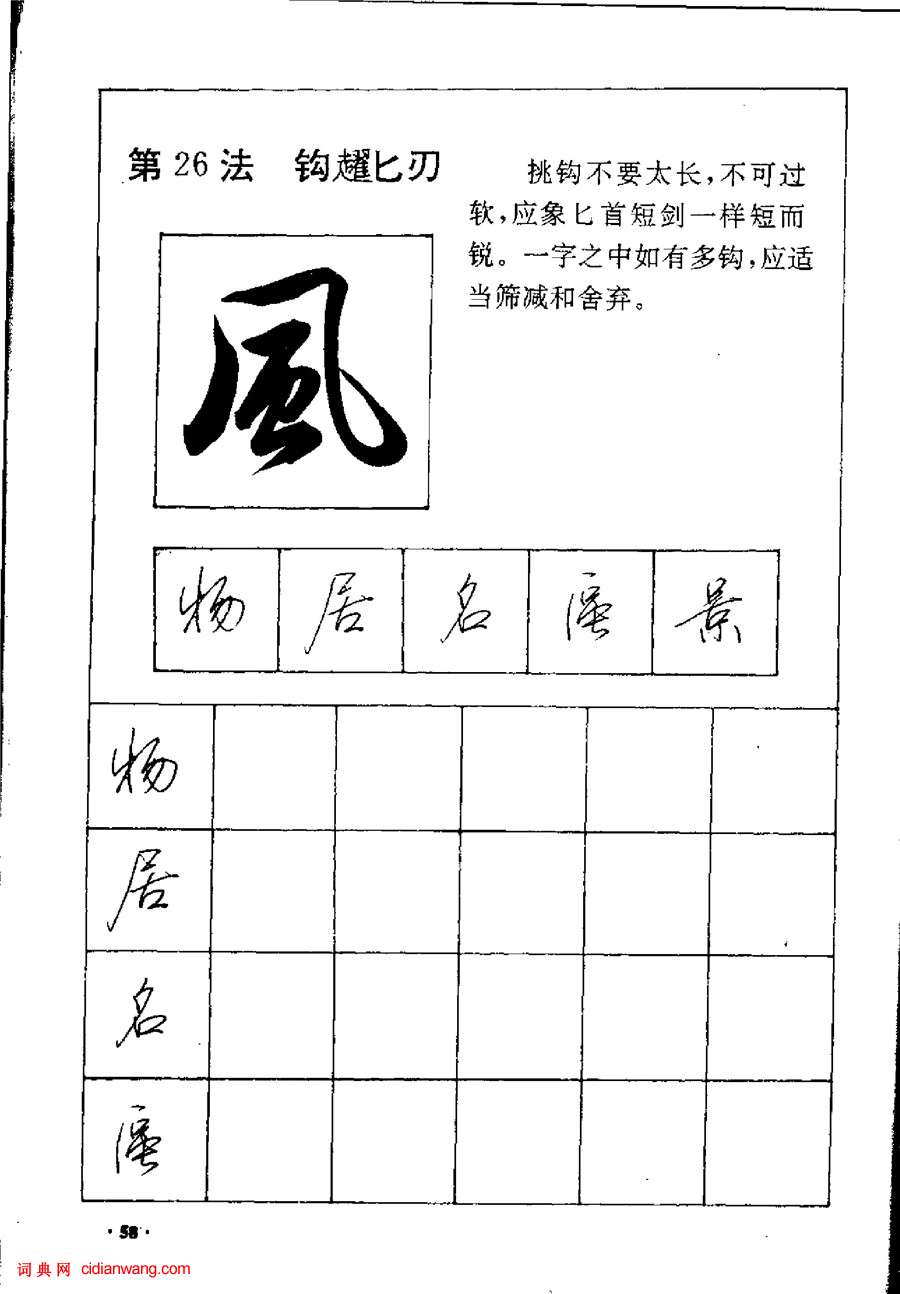 第26法 钩趯匕刃
挑钩不要太长,不可过
软,应象匕首短剑一样短而
锐。一字之中如有多钩,应适
当筛减和舍弃。
風
物 居 名 景
物
居
名
·58·
词典网 cidianwang.com